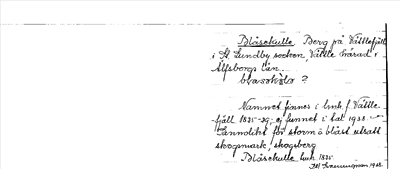 Blåsekulle Berg på Vättlefjäll
i St. Lundby socken, Vättle härad i
Älfsborgs län.
blasekulo ?
Namnet finnes i hmk. f. Vättle-
fjäll 1825-29, ej funnet i kat. 1938.
Sannolikt för storm o blåst utsatt
skogsmark, skogsberg
Blåsekulle hmk 1825
1938.